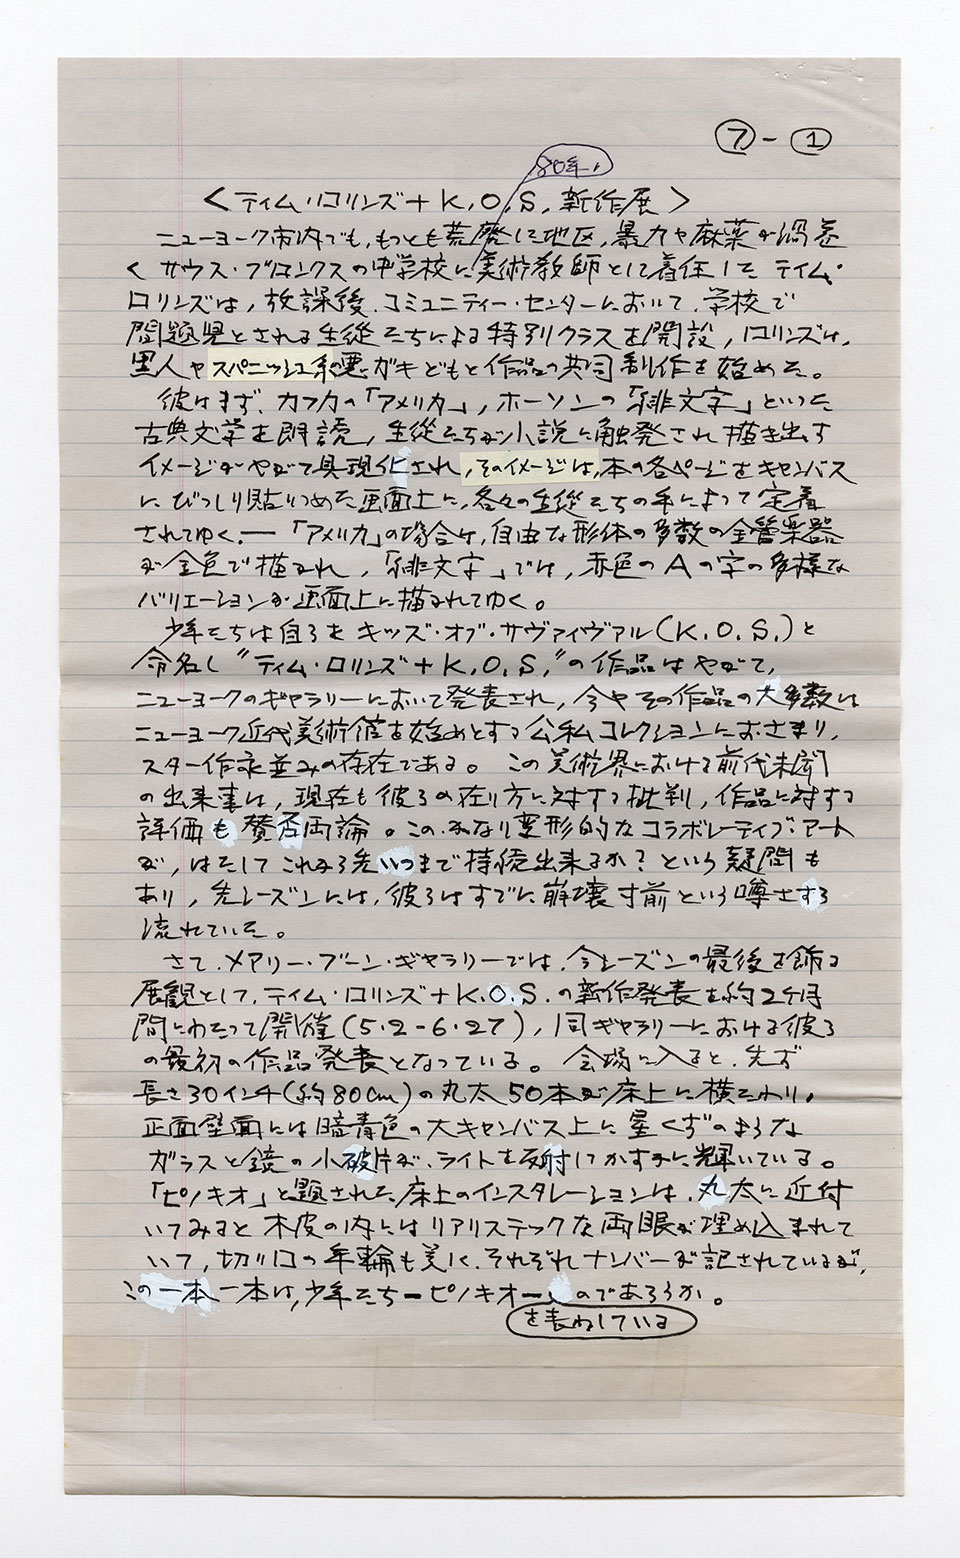 ⑦-①
80年、
<ティム・ロリンズ+K.O.S. 新作展>
ニューヨーク市内でも、もっとも荒廃した地区、暴力や麻薬が渦巻
くサウス・ブロンクスの中学校に美術教師として着任したティム・
ロリンズは、放課後、コミュニティー・センターにおいて、学校で
問題児とされる生徒たちによる特別クラスを開設、ロリンズは、
黒人やスパニッシュ系悪ガキどもと作品の共同制作を始めた。
彼はまず、カフカの「アメリカ」、ホーソンの「緋文字」といった
古典文学を朗読、生徒たちが小説に触発され描き出す
イメージがやがて具現化され、そのイメージは、本の各ページをキャンバス
にびっしり貼りつめた画面上に、各々の生徒たちの手によって定着
されてゆく。―「アメリカ」の場合は、自由な形体の多数の金管楽器
が金色で描かれ、「緋文字」では、赤色のAの字の多様な
バリエーションが画面上に描かれてゆく。
少年たちは自らをキッズ・オブ・サヴァイヴァル(K.O.S.)と
命名し〝ティム・ロリンズ+K.O.S.〟の作品はやがて、
ニューヨークのギャラリーにおいて発表され、今やその作品の大多数は
ニューヨーク近代美術館を始めとする公私コレクションにおさまり、
スター作家並みの存在である。この美術界における前代未聞
の出来事は、現在も彼らの在り方に対する批判、作品に対する
評価も賛否両論。この、かなり変形的なコラボレーティブ・アート
が、はたしてこれから先いつまで持続出来るか?という疑問も
あり、先シーズンには、彼らはすでに崩壊寸前という噂さする
流れていた。
さて、メアリー・ブーン・ギャラリーでは、今シーズンの最後を飾る
展観として、ティム・ロリンズ+K.O.S.の新作発表を約2ケ月
間にわたって開催(5・2-6・27)、同ギャラリーにおける彼ら
の最初の作品発表となっている。会場に入ると、先ず
長さ30インチ(約80cm)の丸太50本が床上に横たわり、
正面壁面には暗青色の大キャンバス上に星くずのような
ガラスと鏡の小破片が、ライトを反射してかすかに輝いている。
「ピノキオ」と題された床上のインスタレーションは、丸太に近付
いてみると木皮の内にはリアリステックな両眼が埋め込まれて
いて、切り口の年輪も美しく、それぞれナンバーが記されているが、
この一本一本は、少年たちーピノキオー、のであろうか。
を表わしている